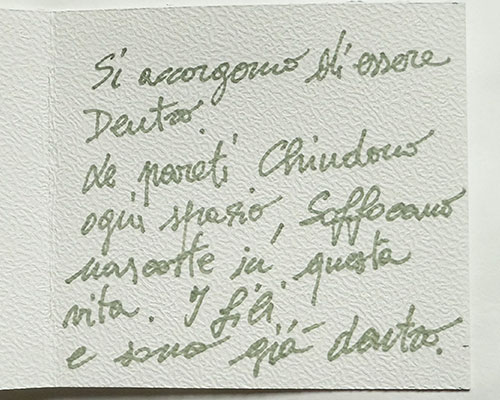 Si accorgono di essere
Dentro.
Le pareti Chiudono
ogni spazio, Soffocano
nascoste in questa
vita. I fili,
e sono già dentro.